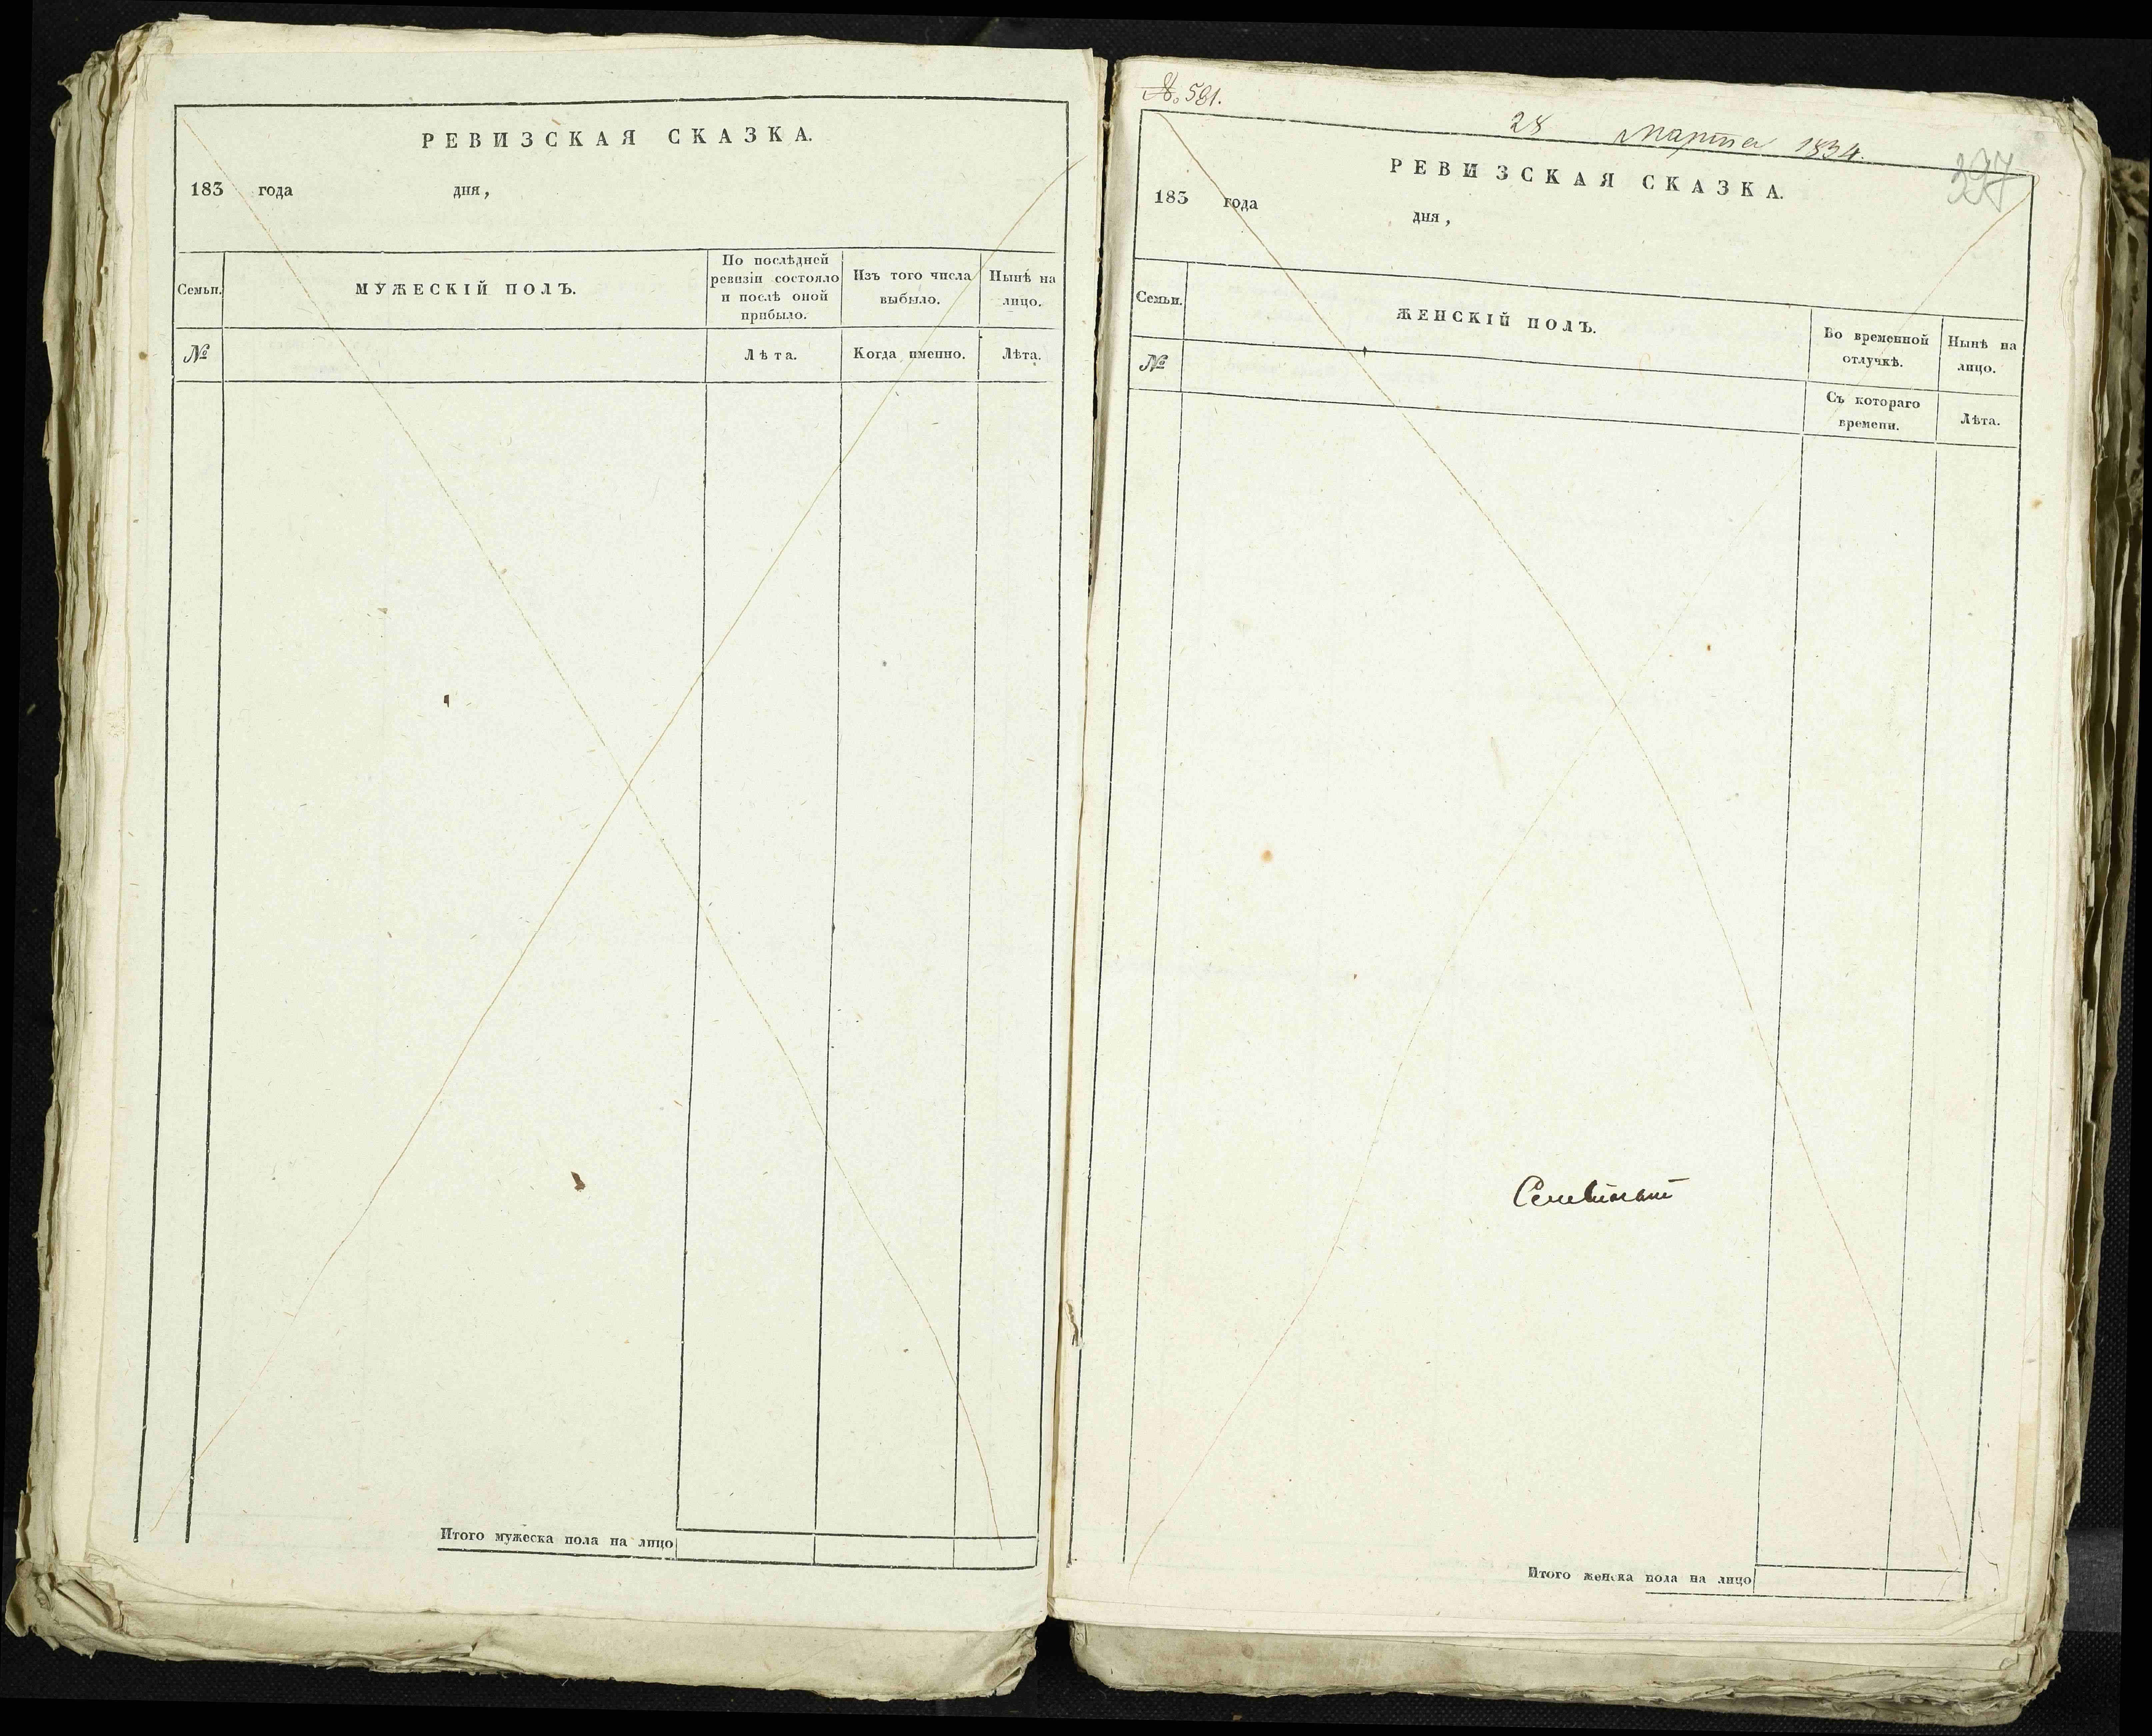 РЕВИЗСКАЯ СКАЗКА.
183 года дня,
Семьи.
МУЖЕСКІЙ ПОЛЪ.
По послѣдней
ревизіи состояло
и послѣ оной
прибыло.
Изъ того числа
выбыло.
Нынѣ на
лицо.
№
Лѣта.
Когда именно.
Лѣта.
Итого мужеска пола на лицо
№ 581.
28 Марта 1834.
397
РЕВИЗСКАЯ СКАЗКА.
183 года дня,
Семьи.
ЖЕНСКІЙ ПОЛЪ.
Во временной
отлучкѣ.
Нынѣ на
лицо.
№
Съ котораго
времени.
Лѣта.
Итого женска пола на лицо